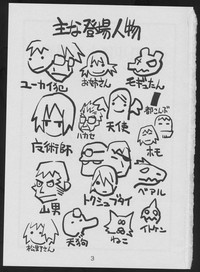 主な登場人物
ユーカイ犯
お姉さん
モギュたん
都こんぶ
ハカセ
天使
魔術師
ホモ
トクシュブタイ
ベアル
山男
イトケン
松野さん
天狗
ねこ
3